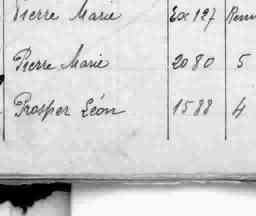 Pierre Marie Ex 127
Pierre Marie 2080 5
Prosper Léon 1588 4